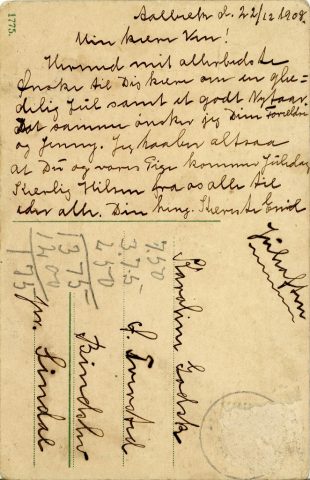 1775.
Aalbæk d. 22/12 1908.
Min kære Ven!
Hermed mit allerbedste
Ønske til Dig kære om en glæ=
delig Jul samt et godt Nytaar.
Det samme ønsker jeg Dine Forældre
og Jenny. Jeg haaber altsaa
at Du og vores Pige kommer Juledag
Kærlig Hilsen fra os alle til
eder alle. Din heng.
7.50
3.75
2.50
13 75
12 00
1 75
Karoline
Bindslev
pr. Sindal